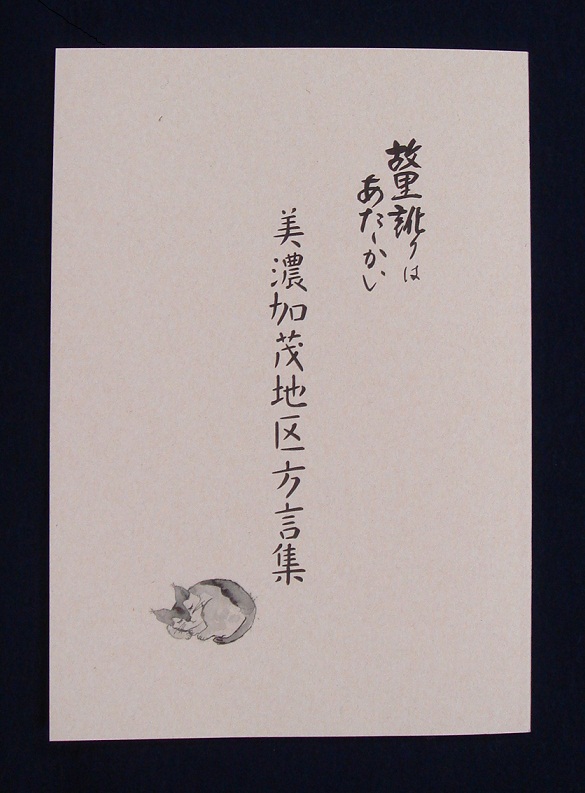 故里訛りは
あたゝかい
美濃加茂地区方言集